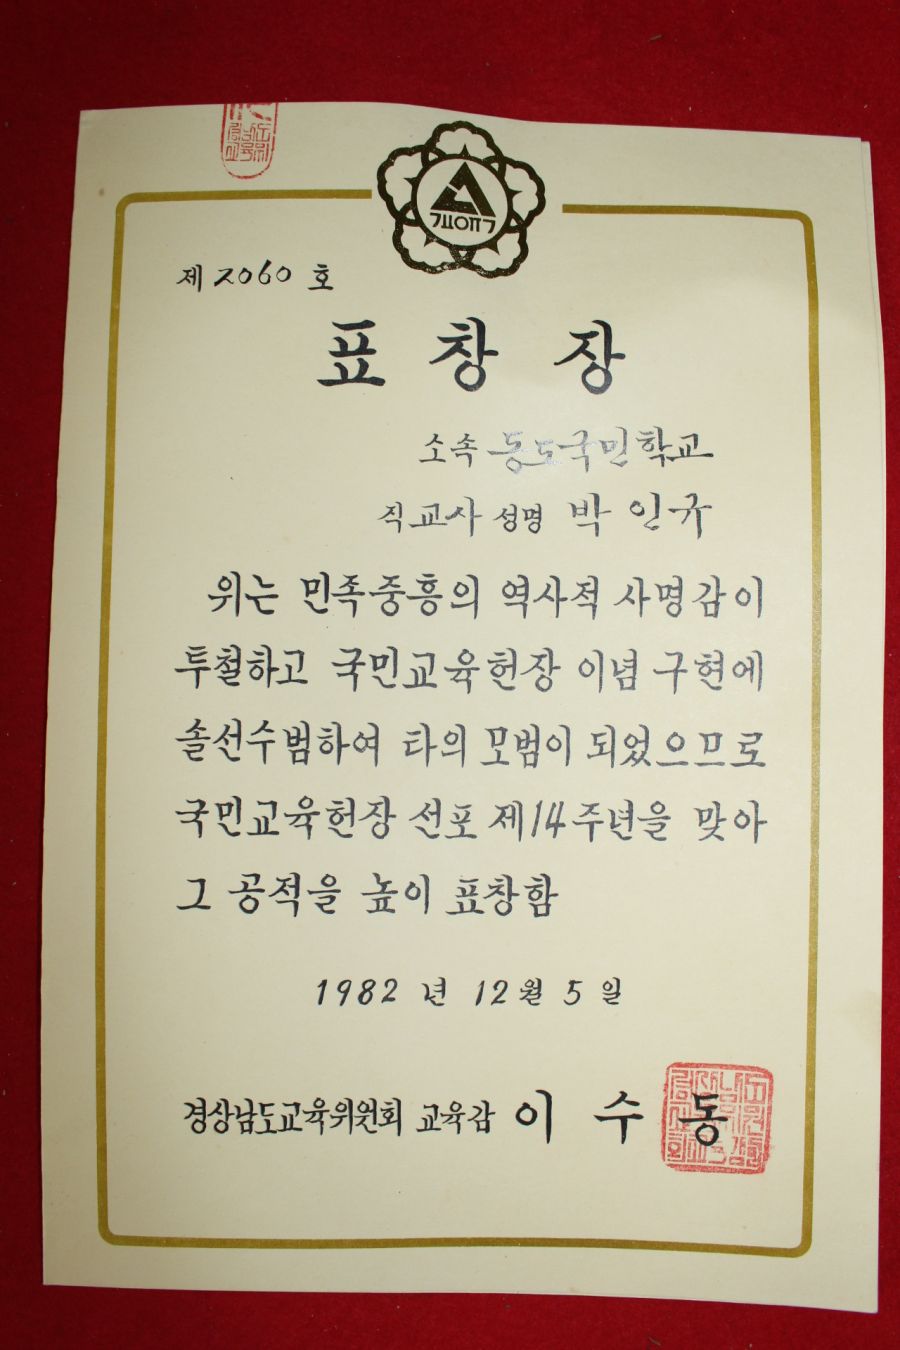 제 2060 호
표창장
소속 동도국민학교
직 교사 성명 박인규
위는 민족중흥의 역사적 사명감이
투철하고 국민교육헌장 이념 구현에
솔선수범하여 타의 모범이 되었으므로
국민교육헌장 선포 제14주년을 맞아
그 공적을 높이 표창함
1982 년 12월 5 일
경상남도교육위원회 교육감 이수동